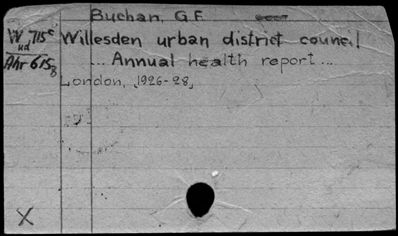 Buchan, G.F.
W 715c Willesden urban district council
ud
Ahr 615 ... Annual health report ...
London, 1926-28,
X